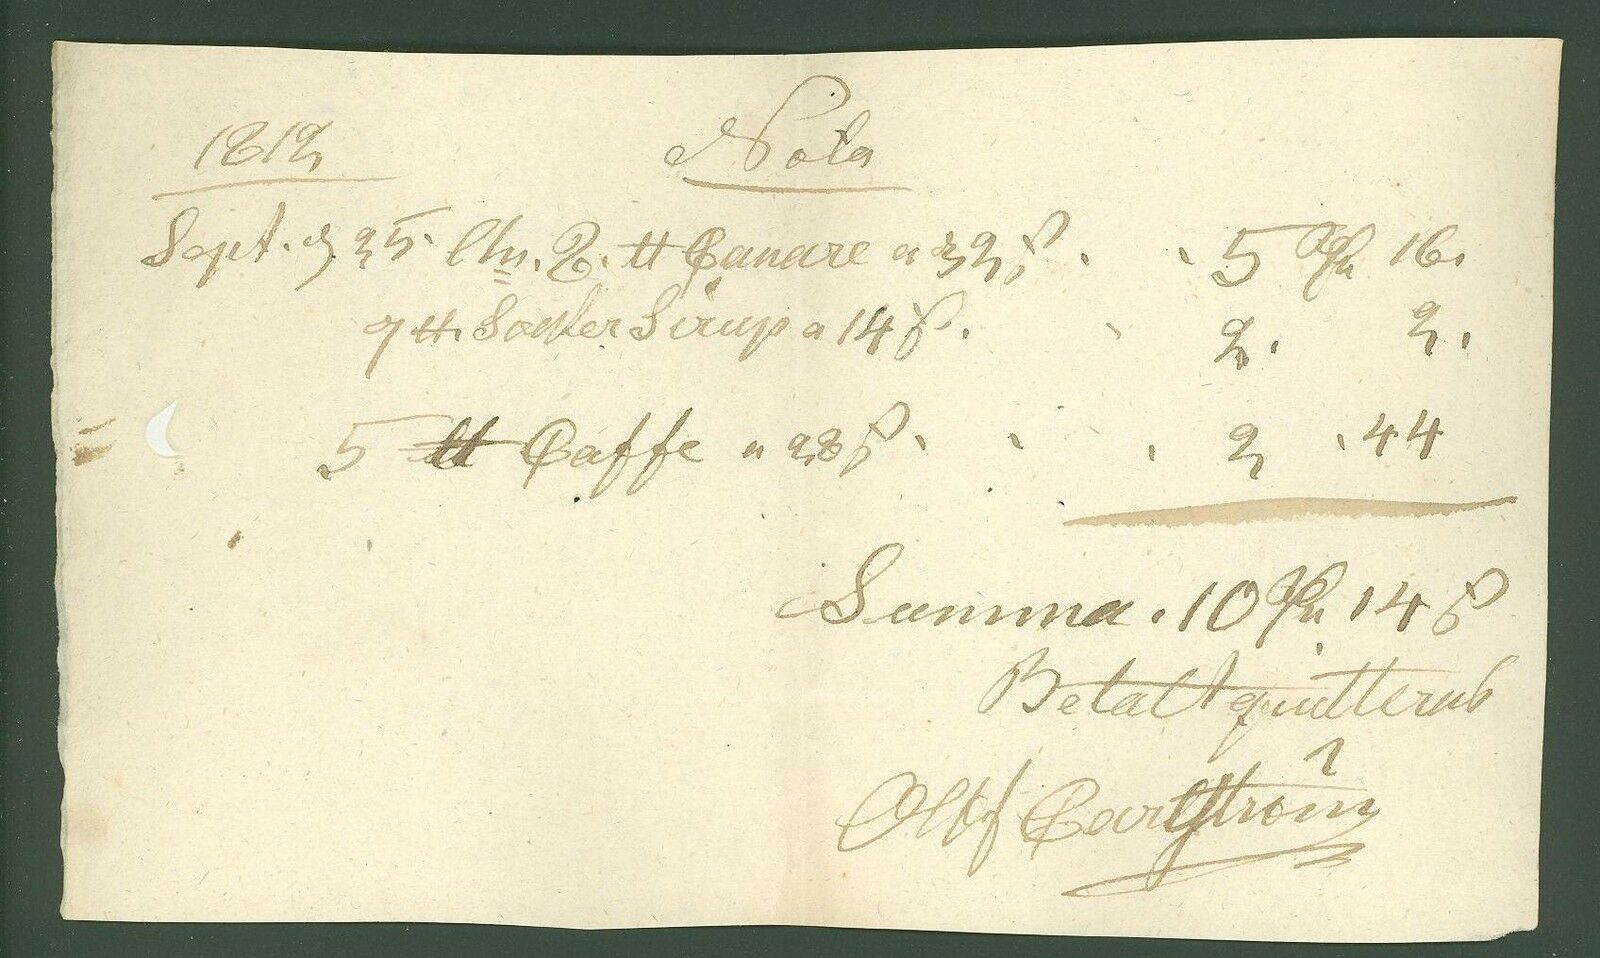 1812 Nota
Sept. d 25. 8 tt Canare a 32 ß. 5 Rdr 16.
7 tt. Socker Sirup a 14 ß. 2. 2.
5 tt Caffe a 28 ß. 2. 44
Summa. 10 Rdr 14 ß
Betalt quitteras
Olof Carlström